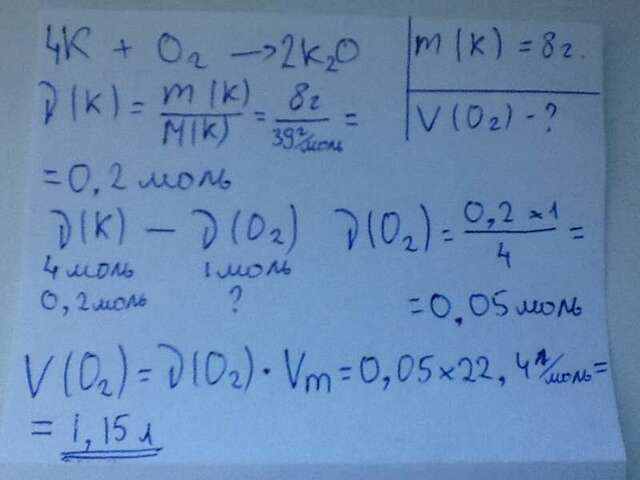 4K + O₂ → 2K₂O
m(K) = 8г.
V(O₂) - ?
ν(K) = m(K)/M(K) = 8г/39г/моль =
= 0,2 моль
ν(K) — ν(O₂) ν(O₂) = 0,2×1/4 =
4 моль 1 моль
0,2 моль ? = 0,05 моль
V(O₂) = ν(O₂) · Vm = 0,05×22,4 л/моль =
= 1,15 л